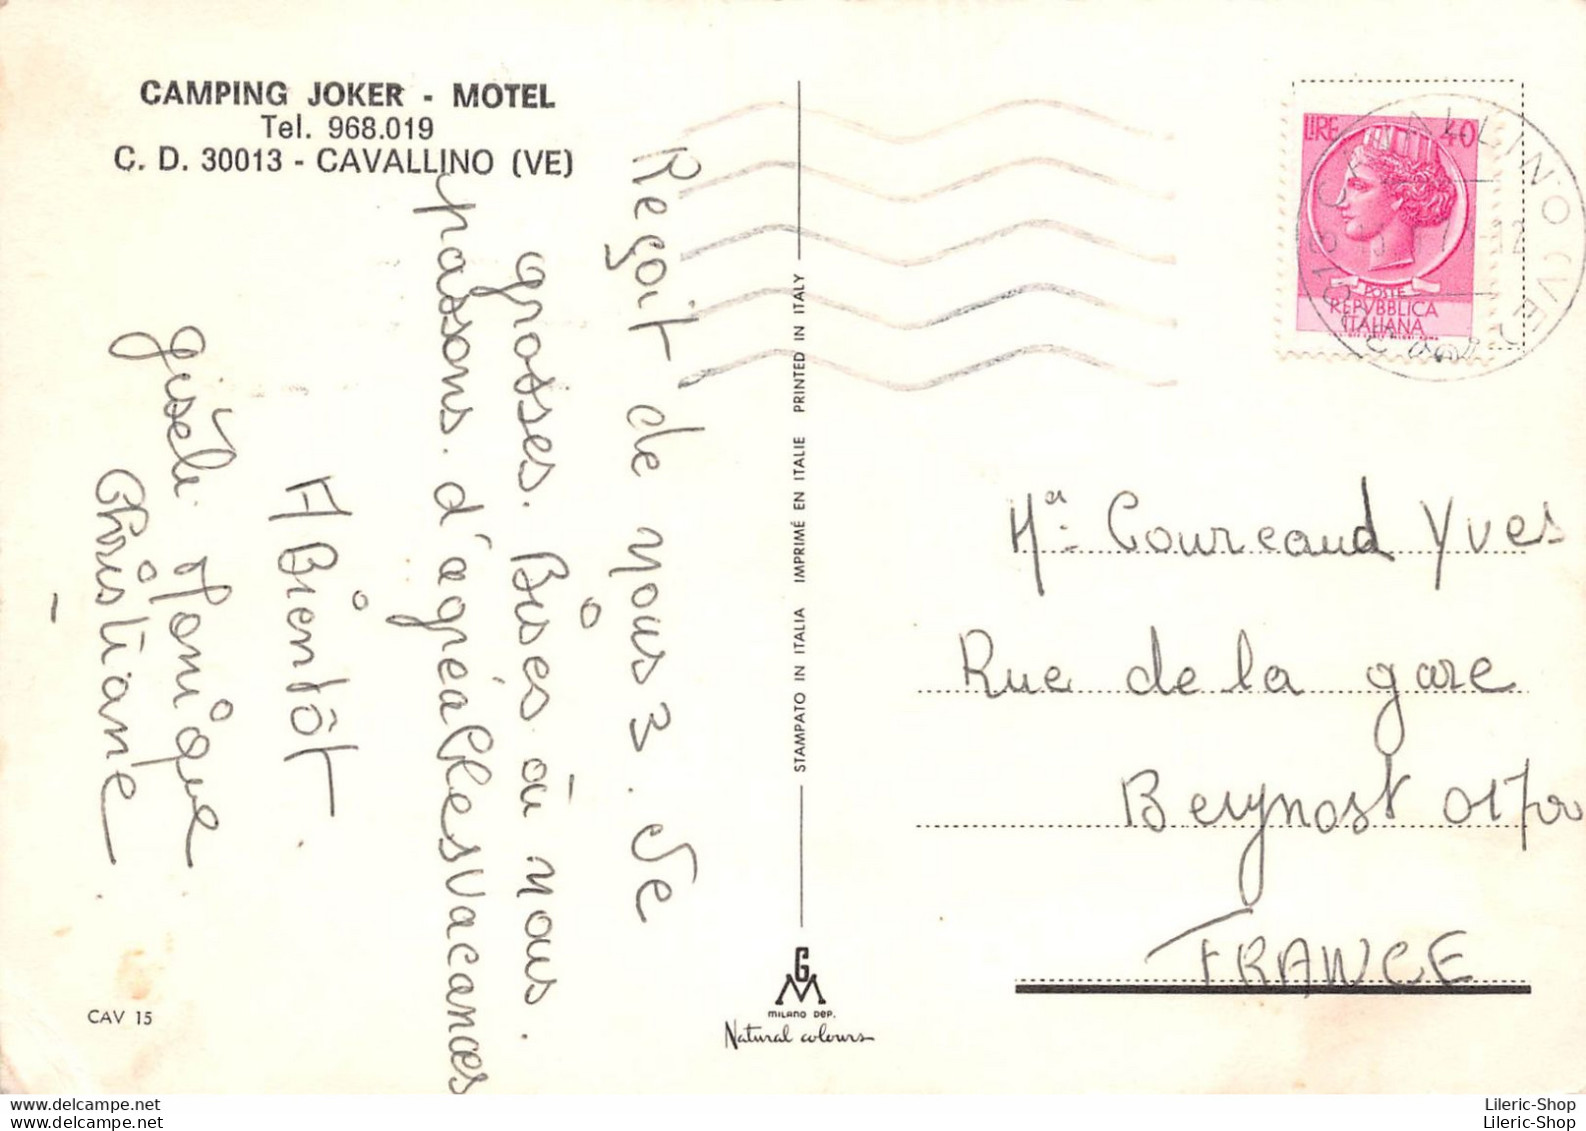 CAMPING JOKER - MOTEL
Tel. 968.019
C. D. 30013 - CAVALLINO (VE)
Reçoit de nous 3. de
grosses. Bises ou nous
passons. d'agréables vacances
A Bientôt
gisèle Monique
Christiane
CAV 15
STAMPATO IN ITALIA IMPRIMÉ EN ITALIE PRINTED IN ITALY
GM
MILANO DEP.
Natural colours
LIRE 40
POSTE
REPVBBLICA
ITALIANA
CAVALLINO (VE)
Courcaud Yves
Rue de la gare
Beynost 01700
FRANCE
Lileric-Shop
Lileric-Shop
www.delcampe.net
www.delcampe.net